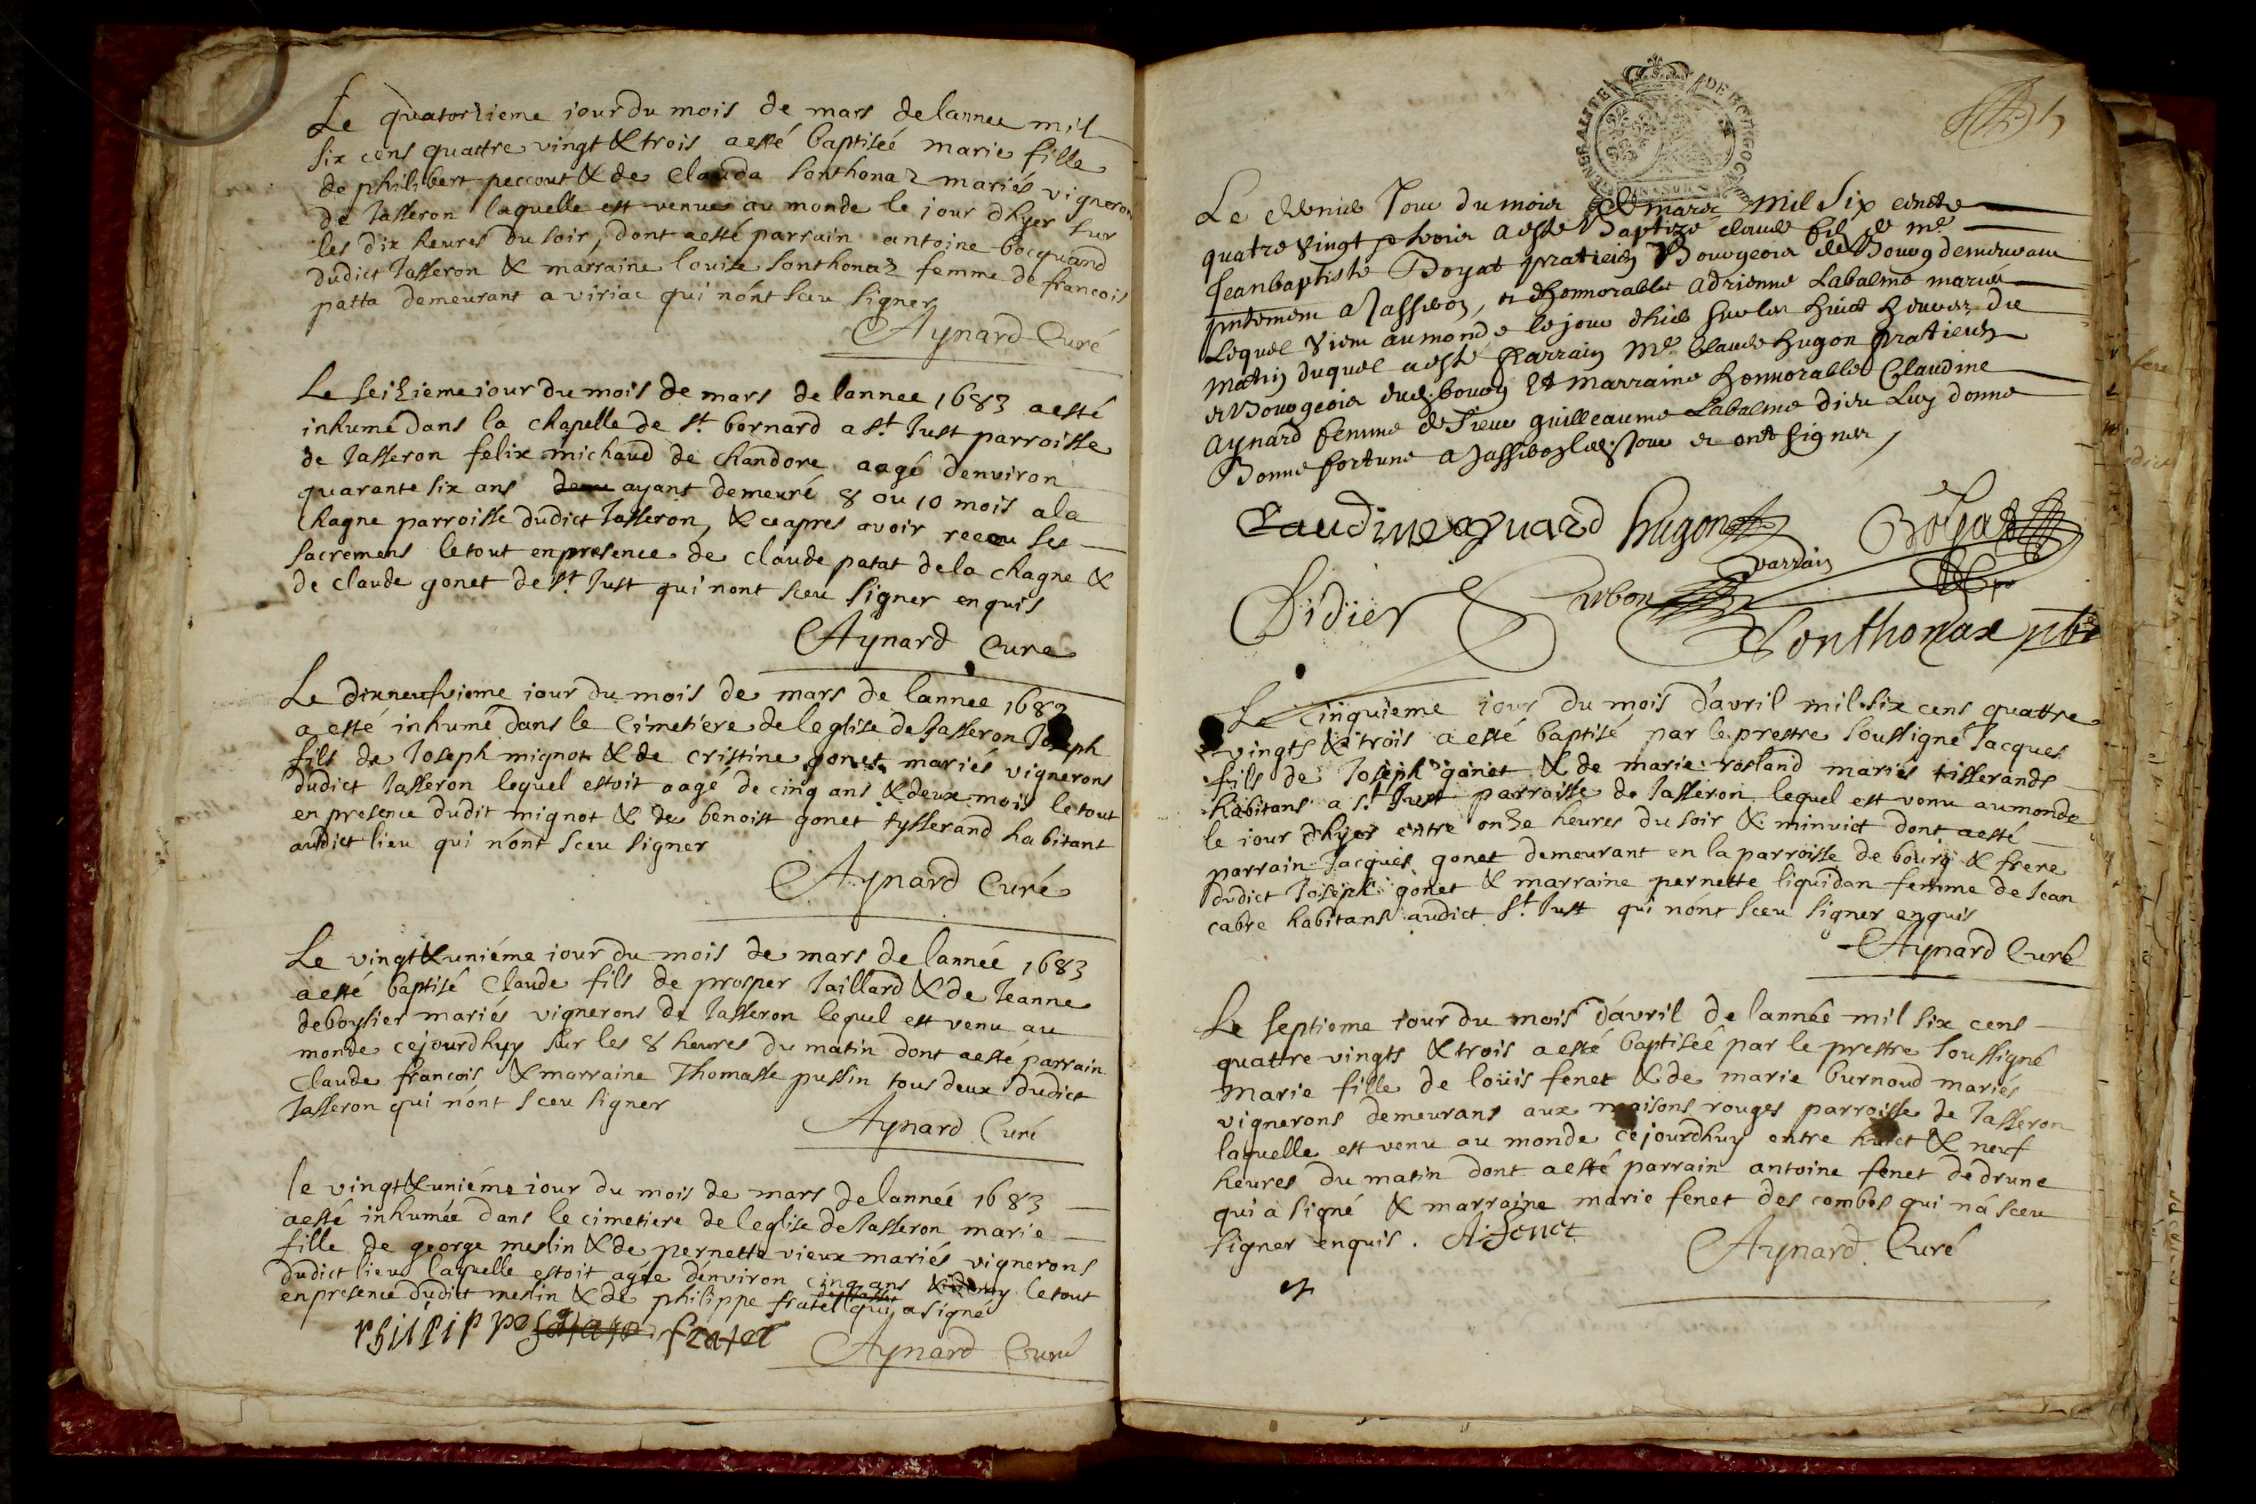 Le quatorzieme iour du mois de mars de lannee mil
six cens quattre vingt & trois a esté baptiséé marie fille
de philibert peccout & de clauda sonthonaz mariés vigneron
de Jasseron laquelle est venue au monde le jour dhyer sur
les dix heures du soir, dont a esté parrain antoine bocquand
dudict Jasseron & marraine louise sonthonaz femme de francois
patta demeurant a viriac qui nónt sceu signer
Aynard Curé
Le seizieme iour du mois de mars de lannee 1683 a esté
inhumé dans la chapelle de st. bernard a st. Just parroisse
de Jasseron felix michaud de chandore aagé denviron
quarante six ans ayant demeuré 8 ou 10 mois a la
Chagne parroisse dudict Jasseron, & ce apres avoir receu ses
sacremens le tout en presence de claude patat de la chagne &
de claude gonet de st. Just qui nont sceu signer enquis
Aynard Curé
Le dixneufvieme iour du mois de mars de lannee 1683
a esté inhumé dans le cimetiere de leglise de Jasseron Joseph
fils de Joseph mignot & de cristine gonet mariés vignerons
dudict Jasseron lequel estoit aagé de cinq ans & deux mois le tout
en presence dudit mignot & de benoist gonet tysserand habitant
audict lieu qui nónt sceu signer
Aynard Curé
Le vingt & uniéme iour du mois de mars de lannéé 1683
a esté baptisé Claude fils de prosper Jaillard & de Jeanne
deboysier mariés vignerons de Jasseron lequel est venu au
monde cejourdhuy sur les 8 heures du matin dont a esté parrain
Claude francois & marraine Thomasse pussin tous deux dudict
Jasseron qui nónt sceu signer
Aynard Curé
le vingt & uniéme iour du mois de mars de lannéé 1683
a esté inhumée dans le cimetiere de leglise de Jasseron marie
fille de george meslin & de pernette vieux mariés vignerons
dudict lieu laquelle estoit agée denviron cinq ans le tout
en presence dudict meslin & de philippe fratel qui a signé
philippe fratel
Aynard Curé
GENERALITE DE BOURGOGNE
Le dernier Jour du mois de mars mil six cents
quatre vingt et trois a esté Baptizé claude filz de me
Jeanbaptiste Boyat praticien Bourgeois de Bourg demeurant
pntement a Jasseron, et dhonnorable adrienne Labalme mariés
Lequel vient au monde le jour dhier sur les huict heures du
matin duquel a esté parrain Me Claude hugon praticien
et Bourgeois dud. bourg Et marraine honnorable Claudine
Aynard femme de sieur guilleaume Labalme dieu Luy donne
Bonne fortune a Jasseron lesd. Jour et ont signer
Claudine aynard hugon parrain Boyat
Didier
Sonthonax pbre
Le cinquieme iour du mois dávril mil six cens quattre
vingts & trois a esté baptisé par le prestre soussigné Jacques
fils de Joseph gonet & de marie rosland mariés tisserands
habitans a st. Just parroisse de Jasseron lequel est venu au monde
le iour dhyer entre onze heures du soir & minvict dont a esté
parrain Jacques gonet demeurant en la parroisse de bourg & frere
dudict Joseph gonet & marraine pernette liquidan femme de Jean
cabre habitans audict st. Just qui nónt sceu signer enquis
Aynard Curé
Le septieme iour du mois dávril de lannéé mil six cens
quattre vingts & trois a esté baptiséé par le prestre soussigné
Marie fille de loüis fenet & de marie burnoud mariés
vignerons demeurans aux maisons rouges parroisse de Jasseron
laquelle est venu au monde cejourdhuy entre huict & neuf
heures du matin dont a esté parrain antoine fenet de drune
qui à signé & marraine marie fenet des combes qui ná sceu
signer enquis. A. fenet
Aynard Curé